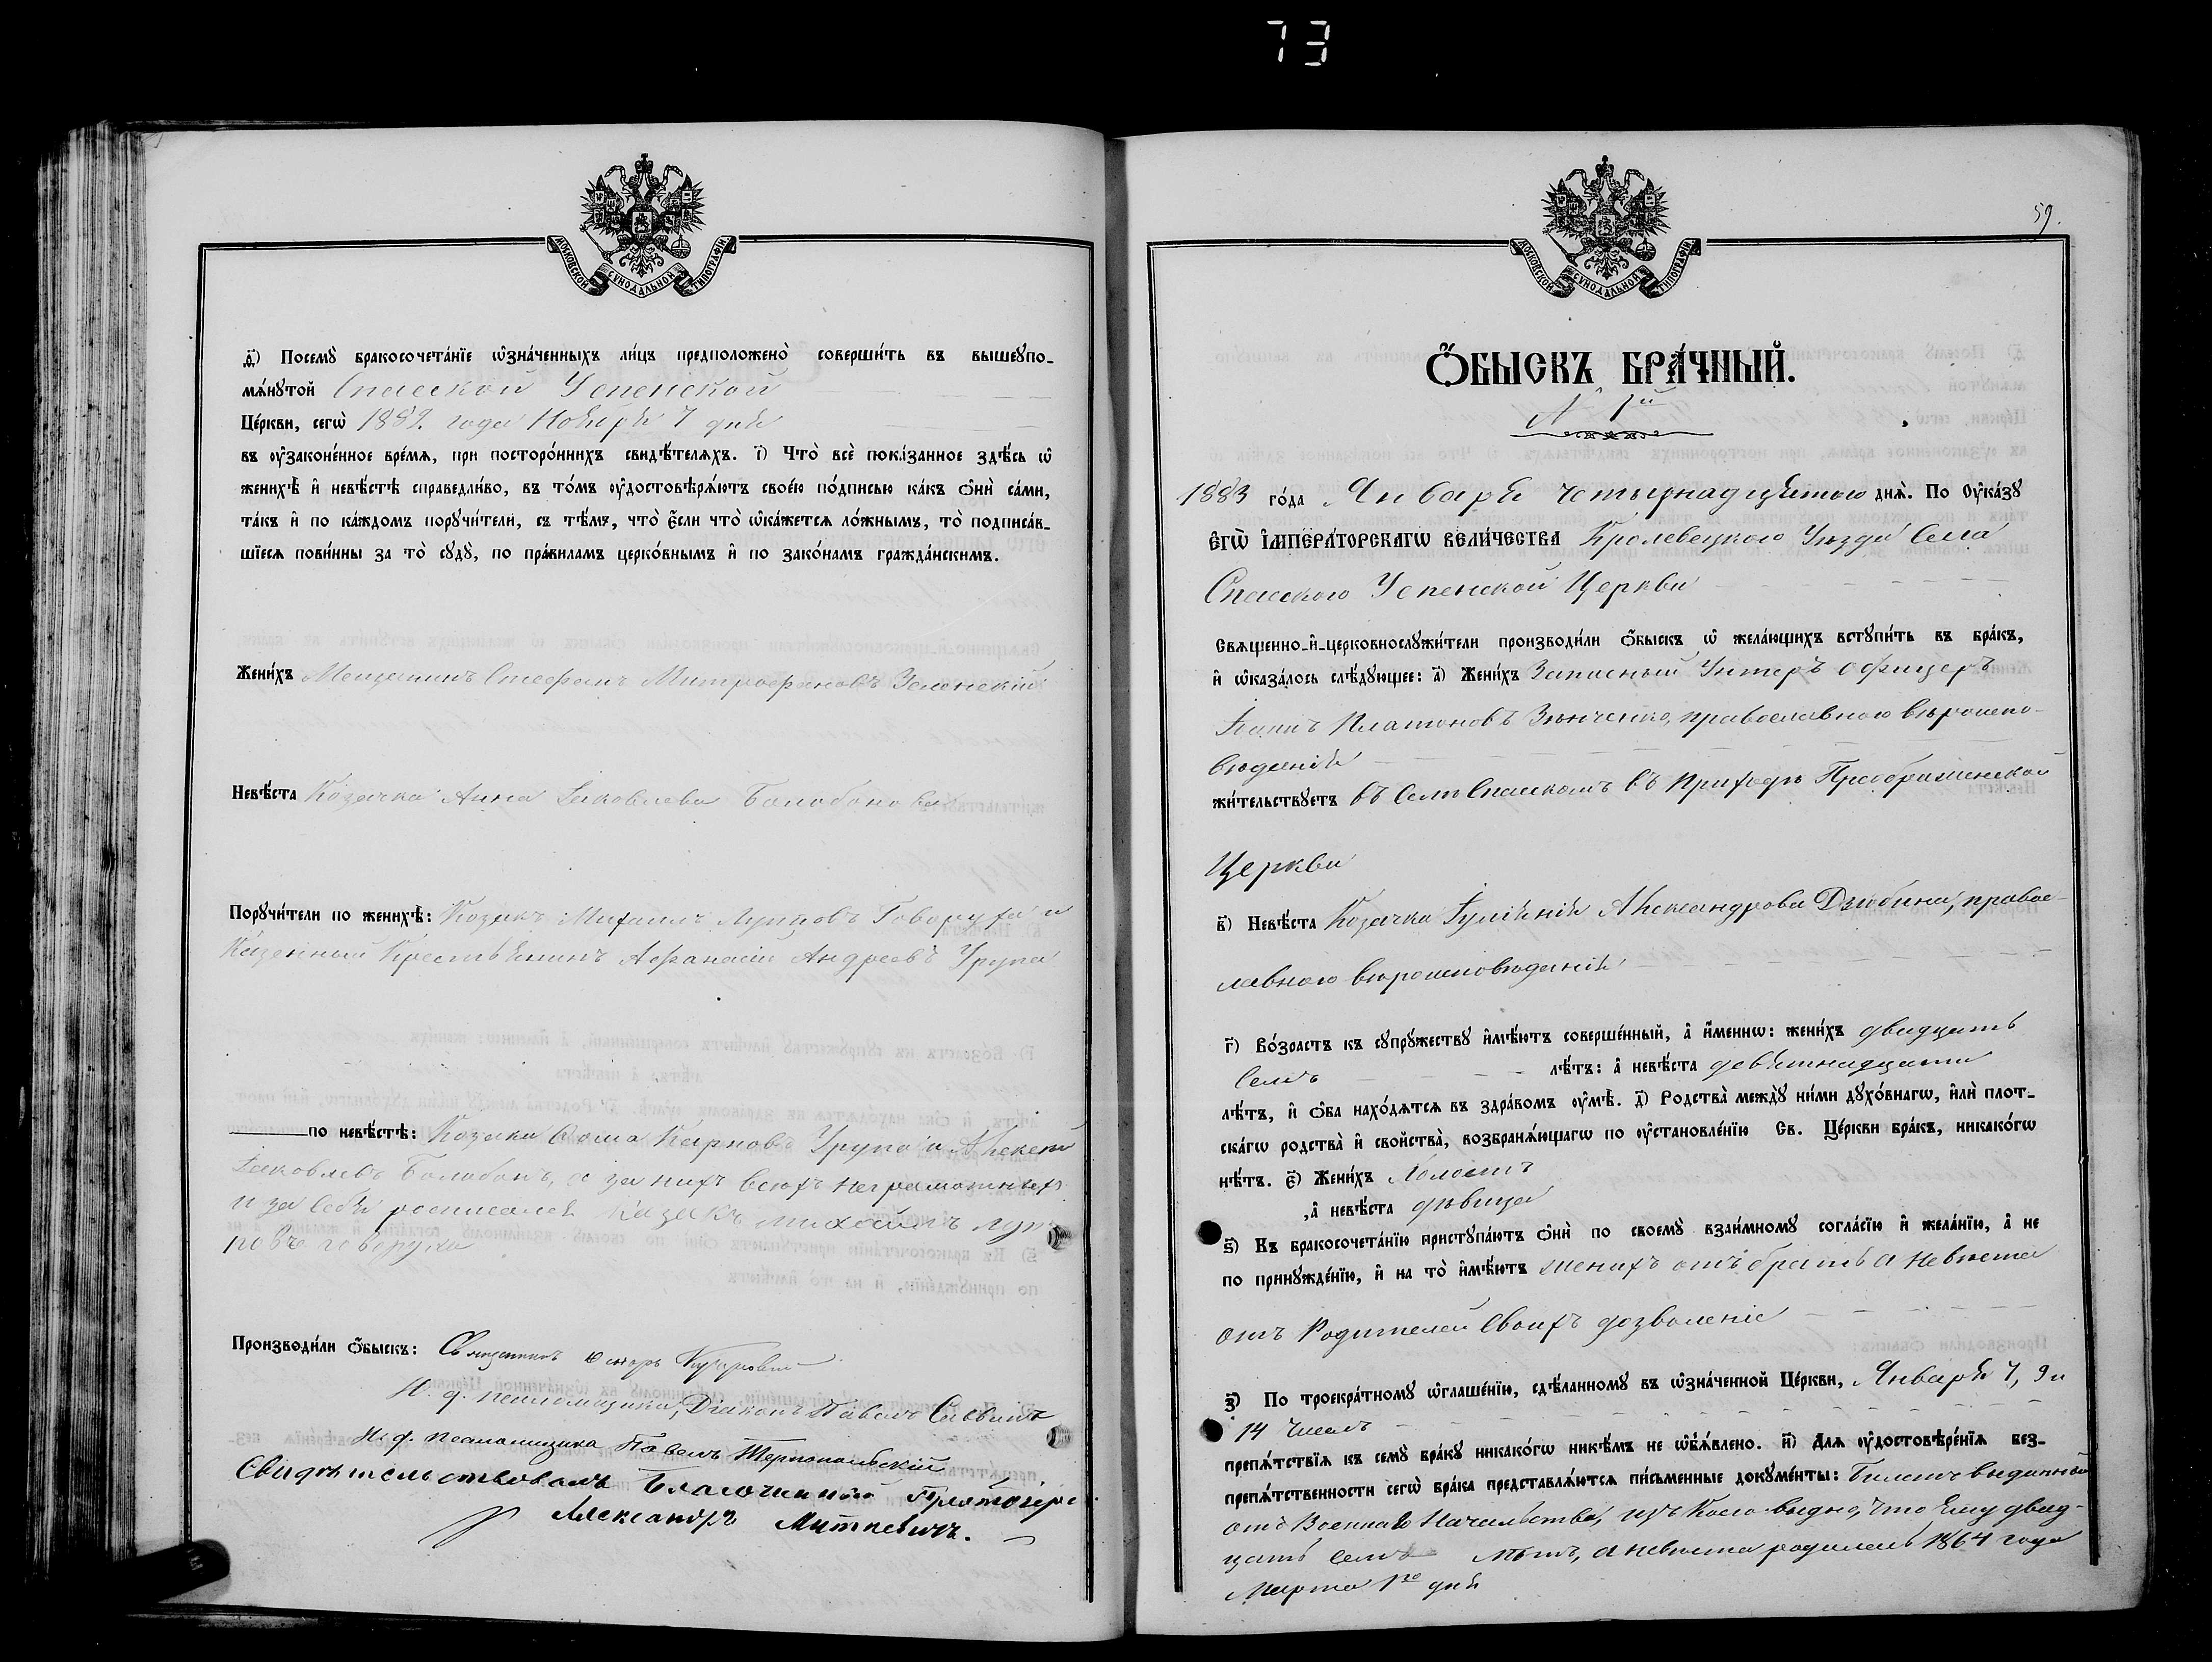 73
МОСКОВСКОЙ СУНОДАЛЬНОЙ ТИПОГРАФІИ
ѳ҃) Посемꙋ̀ бракосочета́нїе ѡ҆зна́ченныхъ ли́цъ предположено̀ соверши́ть въ вышеꙋпо-
мѧ́нꙋтой Спасской Успенской
Це́ркви, сегѡ̀ 1882. года Ноября 7 дня
въ ᲂу҆законе́нное вре́мѧ, при посторо́ннихъ свидѣ́телѧхъ. і҃) Что̀ всѐ пока́занное здѣ́сь ѡ҆
женихѣ̀ и҆ невѣ́стѣ справедли́во, въ то́мъ ᲂу҆достовѣрѧ́ютъ свое́ю по́дписью ка́къ ѻ҆нѝ са́ми,
та́къ и҆ по ка́ждомъ порꙋчи́тели, съ тѣ́мъ, что̀ є҆́сли что̀ ѡ҆ка́жетсѧ ло́жнымъ, то̀ подписа́в-
шїесѧ пови́нны за то̀ сꙋдꙋ̀, по пра́виламъ церко́внымъ и҆ по зако́намъ гражда́нскимъ.
Жени́хъ Мещанинъ Стефанъ Митрофановъ Зеленскій
Невѣ́ста Козачка Анна Іаковлева Болобонова
Порꙋчи́тели по женихѣ̀: Козакъ Михаилъ Луповъ Говоруха и
Казенный Крестьянинъ Афанасій Андреевъ Урупа
по невѣ́стѣ: Козаки Фома Карповъ Урупа и Алексей
Іаковлевъ Болобонъ, а за нихъ всехъ неграмотныхъ
и за себя росписался Казакъ михаилъ луп
повъ говоруха
Производи́ли ѻ҆́быскъ: Священникъ
И. д. псаломщика, Діаконъ Павелъ Саввичъ
И. д. псаломщика Павелъ Тернопольскій
Свидѣтельствовалъ Благочинный Протоіере
Александръ Миткевичъ.
59.
МОСКОВСКОЙ СУНОДАЛЬНОЙ ТИПОГРАФІИ
Ѻ҆́БЫСКЪ БРА́ЧНЫЙ.
N 1й
1883 го́да Января четырнадцятого днѧ̀. По Оу҆ка́зꙋ
Є҆ГѠ̀ І҆МПЕРА́ТОРСКАГѠ ВЕЛИ́ЧЕСТВА Кролевецкого Уѣзда Села
Спасского Успенской Церкви
Свѧщенно-и҆-церковнослꙋжи́тели производи́ли ѻ҆́быскъ ѡ҆ жела́ющихъ встꙋпи́ть въ бра́къ,
и҆ ѡ҆каза́лось слѣ́дꙋющее: а҃) Жени́хъ Запасный Унтеръ офицеръ
Іоанъ Платоновъ Зѣнченко, православного вѣроиспо-
вѣданія
жи́тельствꙋетъ въ Селѣ Спасскомъ въ приходѣ Преображенской
Церкви
в҃) Невѣ́ста Козачка Іуліянія Александрова Дзюбина, правос-
лавного вѣроисповѣданія
г҃) Во́зрастъ къ сꙋпрꙋ́жествꙋ и҆мѣ́ютъ соверше́нный, а҆ и҆́меннѡ: жени́хъ двадцать
Семь лѣ́тъ: а҆ невѣ́ста девятнадцати
лѣ́тъ, и҆ ѻ҆́ба нахо́дѧтсѧ въ здра́вомъ ᲂу҆мѣ̀. д҃) Родства̀ междꙋ̀ ни́ми дꙋхо́внагѡ, и҆лѝ плот-
ска́гѡ родства̀ и҆ свойства̀, возбранѧ́ющагѡ по ᲂу҆становле́нїю Св. Це́ркви бра́къ, никако́гѡ
нѣ́тъ. є҃) Жени́хъ Холостъ
а҆ невѣ́ста дѣвица
ѕ҃) Къ бракосочета́нїю пристꙋпа́ютъ ѻ҆нѝ по своемꙋ̀ взаи́мномꙋ согла́сїю и҆ жела́нїю, а҆ не
по принꙋжде́нїю, и҆ на то̀ и҆мѣ́ютъ женихъ отъ брата а невѣста
отъ Родителей своихъ дозволеніе
з҃) По троекра́тномꙋ ѡ҆глаше́нїю, сдѣ́ланномꙋ въ ѡ҆зна́ченной Це́ркви, Января 7, 9 и
14 чиселъ
препѧ́тствїѧ къ семꙋ̀ бра́кꙋ никако́гѡ никѣ́мъ не ѡ҆б̾ѧ́влено. и҃) Длѧ ᲂу҆достовѣре́нїѧ без-
препѧ́тственности сегѡ̀ бра́ка представлѧ́ютсѧ пи́сьменные докꙋме́нты: Билетъ выданный
отъ Военнаго Начальства, изъ коего видно, что Ему двад-
цать семь лѣтъ, а невѣста родилась 1864 года
Марта 1го дня